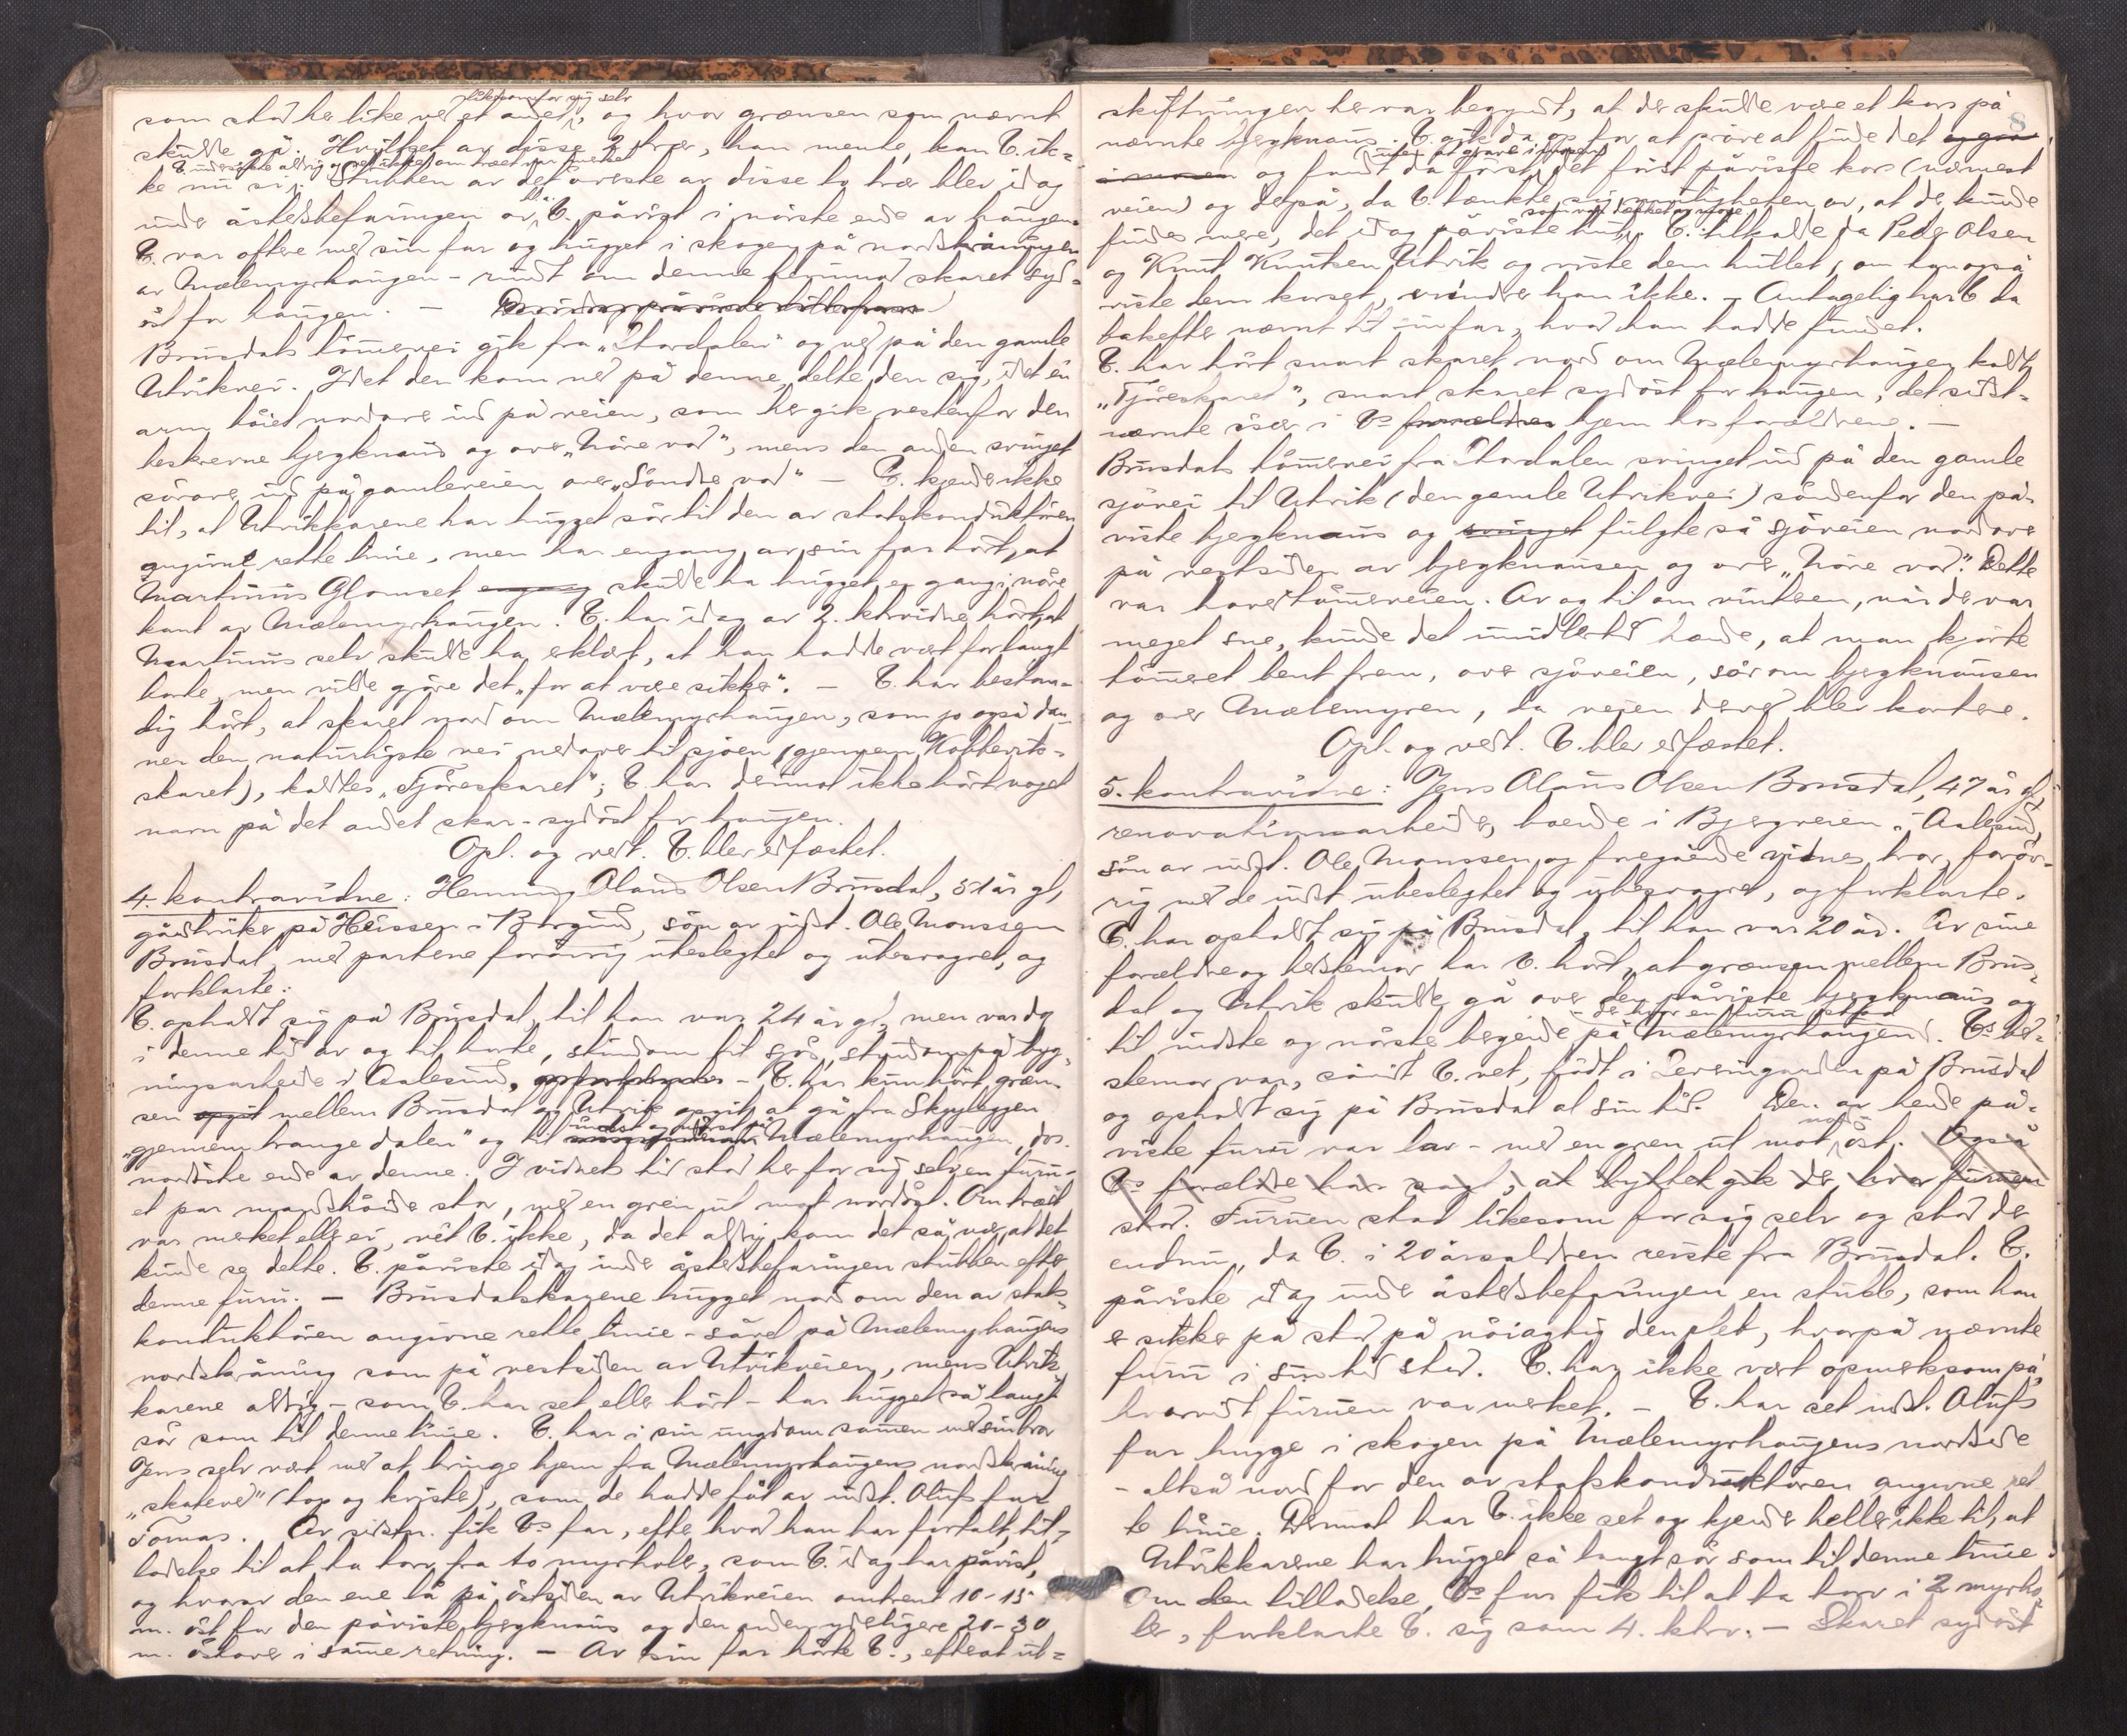 likesom for sig selv
som stod her like ved et andet, og hvor grænsen som nævnt
skulde gå. Hvilket av disse 2 trær, han mente, kan V. ik-
V. undersøkte aldrig og vet ikke, om træet var merket
ke nu si. Stubben av det øverste av disse to trær blev idag
under åstedsbefaringen av V. påvist i nørste ende av haugen.
V. var oftere med sin far og hugget i skogen på nordskråningen
av Mælemyrhaugen - rundt om denne forunnad skaret syd-
øst for haugen. -
Brusdals tømmervei gik fra "Stordalen" og ned på den gamle
Utvikvei. Idet den kom ned på denne, delte den sig, idet én
arm bøiet nordover ind på veien, som her gik vestenfor den
beskrevne bjergknaus og over "Nøre vod", mens den anden svinget
sørover ind på gamleveien over "Søndre vod" - V. kjender ikke
til, at Utvikkarene har hugget sør til den av statskonduktøren
angivne rette linie, men har engang av sin far hørt, at
Martinus Glomset engang skulde ha hugget en gang i nøre
kant av Mælemyrhaugen. V. har idag av 2. ktrvidne hørt, at
Martinus selv skulde ha erklært, at han hadde vært for langt
borte, men vilde gjøre det "for at være sikker". - V. har bestan-
dig hørt, at skaret nord om Mælemyrhaugen, som jo også dan-
ner den naturligste vei nedover til sjøen (gjennem Kobbervits-
skaret), kaldtes "Tjøreskaret"; V. har derimot ikke hørt noget
navn på det andet skar - sydøst for haugen.
Opl. og vedt. V. blev edfæstet.
4. kontravidne: Henning Olaus Olsen Brusdal, 51 år gl,
gårdbruker på Heissen i Borgund, søn av indst. Ole Monssen
Brusdal, med partene forøvrig ubeslegtet og ubesvogret, og
forklarte:
V. opholdt sig på Brusdal, til han var 24 år gl, men var dog
i denne tid av og til borte, stundom til sjøs, stundom på byg-
ningsarbeide i Aalesund, - V. har kun hørt græn-
sen opgit mellem Brusdal og Utvik opgit at gå fra Skyyleggen
inderst og nørst på
"gjennem trange dalen" og til Mælemyrhaugen, dvs.
nordøstre ende av denne. I vidnets tid stod her for sig selv en furu -
et par mandshøider stor, med en gren ut mot nordøst. Om træet
var merket eller ei, vet V. ikke, da det aldrig kom det så nær, at det
kunde se dette. V. påviste idag under åstedsbefaringen stubben efter
denne furu. - Brusdalskarene hugget nord om den av stats-
konduktøren angivne rette linie - såvel på Mælemyrhaugens
nordskråning som på vestsiden av Utvikveien, mens Utvik-
karene aldrig - som V. har set eller hørt - har hugget så langt
sør som til denne linie. V. har i sin ungdom sammen med sin bror
Jens selv vært med at bringe hjem fra Mælemyrhaugens nordskråning
"skateved" (top og kvister), som de hadde fåt av indst. Olufs far
Tomas. Av sidstn. fik V.s far, efter hvad han har fortalt, til-
ladelse til at ta torv fra to myrhole, som V. idag har påvist,
og hvorav den ene lå på østsiden av Utvikveien omtrent 10-15
m. øst for den påviste bjergknaus og den anden yderligere 20-30
m. østover i samme retning. - Av sin far hørte V., efterat ut-
8
skiftningen her var begyndt, at der skulde være et kors på
nævnte bjergknaus. V. gik da op for at prøve at finde det og gra-
uten at grave i mosen
og fandt da først det først påviste kors (nærmest
veien) og derpå, da V. tænkte sig muligheten av, at der kunde
som var dækket av mose
findes mere, det idag påviste hul. V. tilkaldte da Peder Olsen
og Knut Knutsen Utvik og viste dem hullet, om han også
viste dem korset, erindrer han ikke. - Antagelig har V. da
bakefter nævnt til sin far, hvad han hadde fundet.
V. har hørt snart skaret nord om Mælemyrhaugen kaldt
"Tjøreskaret", snart skaret sydøst for haugen, det sidst-
nævnte især i V.s forældres hjem hos forældrene. -
Brusdals tømmervei fra Stordalen svinget ind på den gamle
sjøvei til Utvik (den gamle Utvikvei) søndenfor den på-
viste bjergknaus og svinget fulgte så sjøveien nordover
på vestsiden av bjergknausen og over "Nøre vod". Dette
var hovedtømmerveien. Av og til om vinteren, når der var
meget sne, kunde det imidlertid hænde, at man kjørte
tømmeret bent frem, over sjøveien, sør om bjergknausen
og over Mælemyren, da veien derved blev kortere.
Opl. og vedt. V. blev edfæstet.
5. kontravidne: Jens Olaus Olsen Brusdal, 47 år gl,
renovationsarbeider, boende i Bjergveien i Aalesund,
søn av indst. Ole Monssen og foregående vidnes bror, forøv-
rig med de indst. ubeslegtet og ubesvogret, og forklarte:
V. har opholdt sig på Brusdal, til han var 20 år. Av sine
forældre og bestemor har V. hørt, at grænsen mellem Brus-
dal og Utvik skulde gå over den påviste bjergknaus og
- der hvor en furu stod
til inderste og nørste begende på Mælemyrhaugen. V.s be-
stemor var, såvidt V. vet, født i Leveringarden på Brusdal
og opholdt sig på Brusdal al sin tid. Den av hende på-
nord
viste furu var lav - med en gren ut mot øst. Også
V.s forældre har sagt, at byttet gik der, hvor furuen
stod. Furuen stod likesom for sig selv og stod der
endnu, da V. i 20 årsaldren reiste fra Brusdal. V.
påviste idag under åstedsbefaringen en stubb, som han
er sikker på stod på nøiagtig den plet, hvorpå nævnte
furu i sin tid stod. V. har ikke vært opmerksom på,
hvorvidt furuen var merket. - V. har set indst. Olufs
far hugge i skogen på Mælemyrhaugens nordside
- altså nord for den av statskonduktøren angivne ret-
te linie. Derimot har V. ikke set og kjender heller ikke til, at
Utvikkarene har hugget så langt sør som til denne linie.
Om den tilladelse, V.s far fik til at ta torv i 2 myrho-
ler, forklarte V. sig som 4. ktrv. - Skaret sydøst